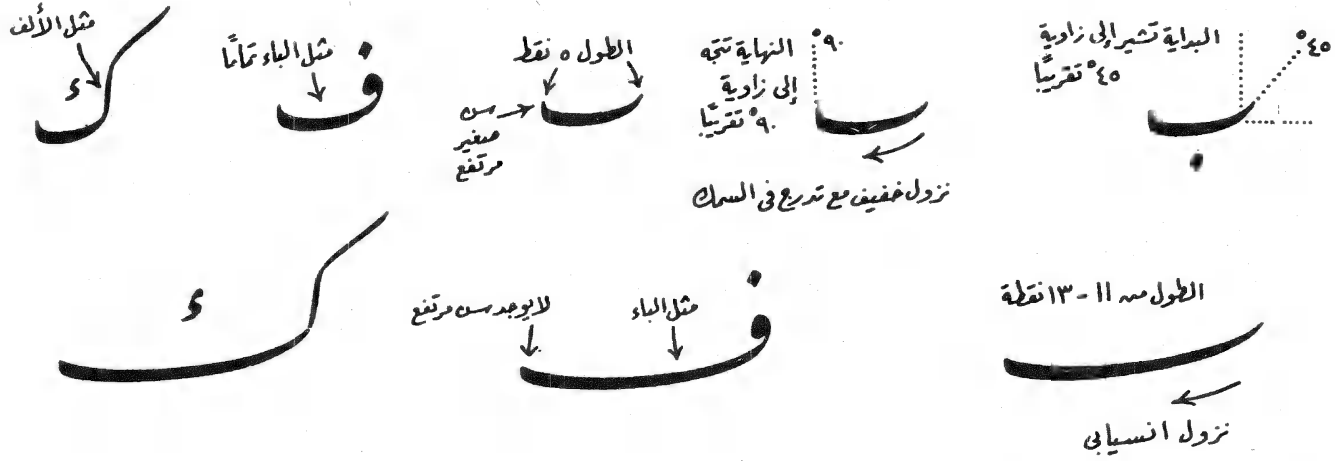 البداية تشير إلى زاوية
٤٥° تقريبًا
٤٥°
ب
٩٠°
النهاية تتجه
إلى زاوية
٩٠° تقريبًا
نزول خفيف مع تدرج في السمك
الطول ٥ نقط
سن
صغير
مرتفع
مثل الباء تمامًا
ف
مثل الألف
ك
الطول من ١١ - ١٣ نقطة
نزول انسيابي
مثل الباء
لا يوجد سن مرتفع
ف
ك